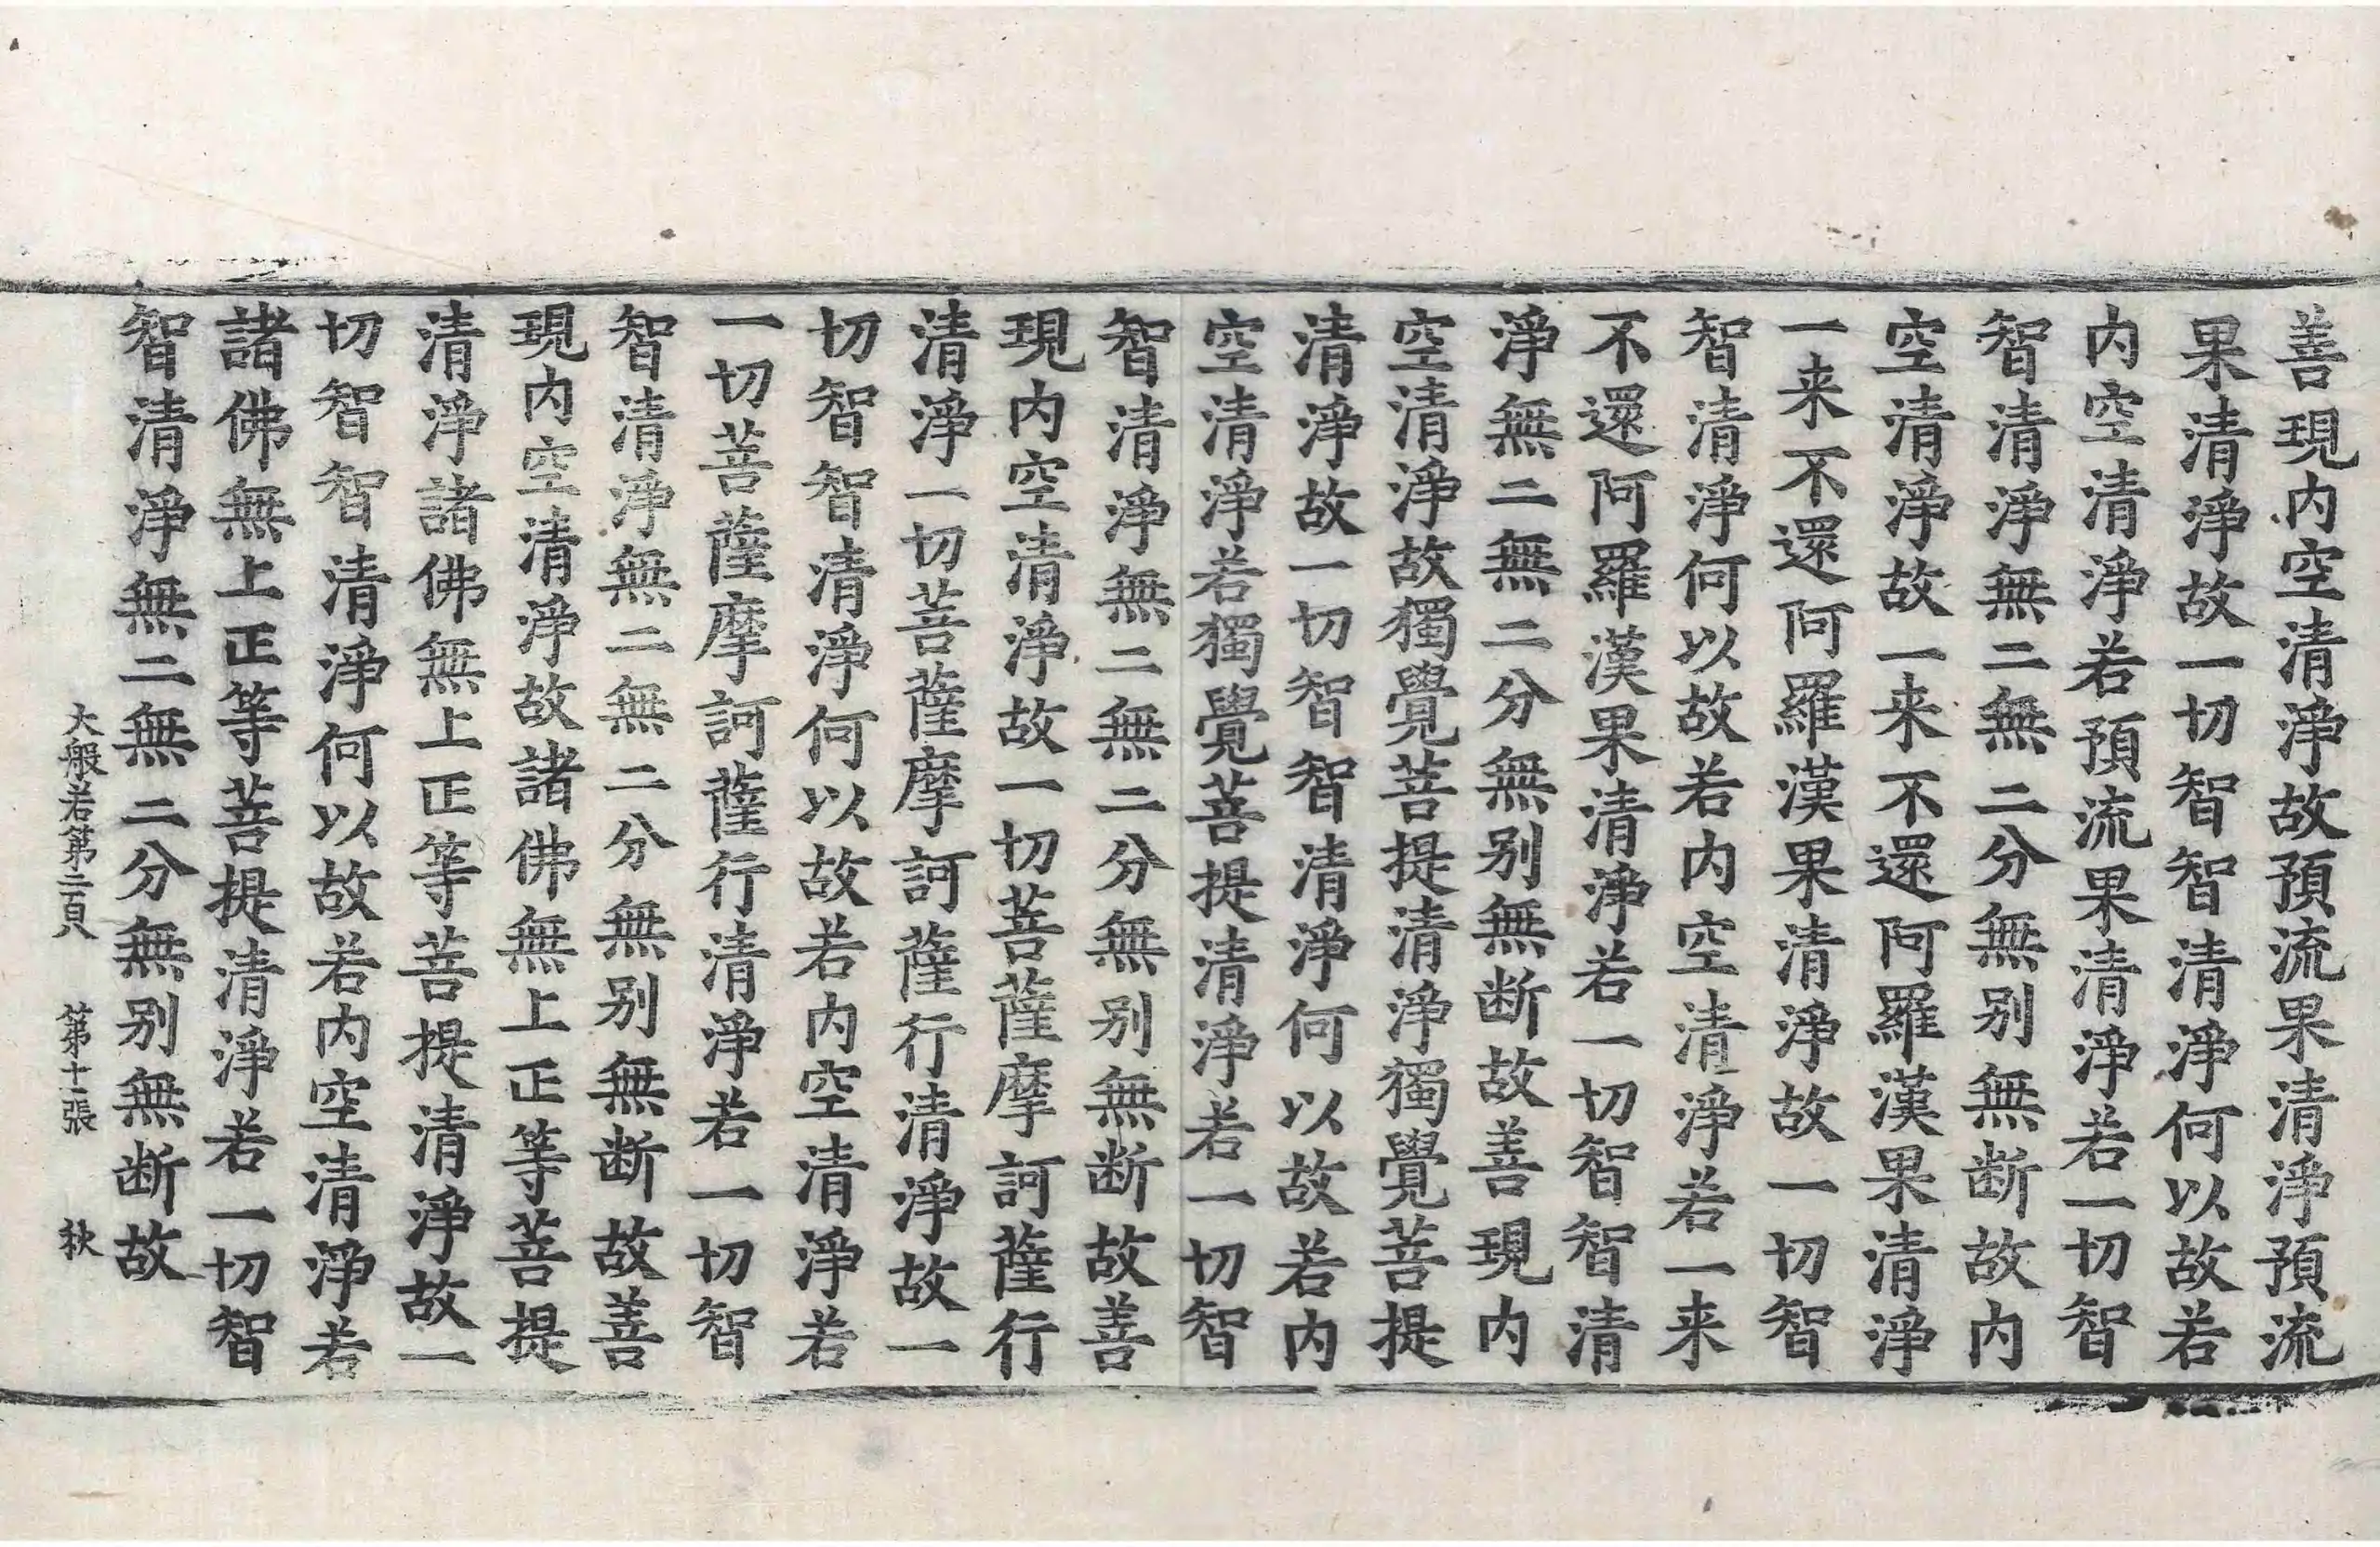 善現内空清淨故預流果清淨預流
果清淨故一切智智清淨何以故若
内空清淨若預流果清淨若一切智
智清淨無二無二分無别無断故内
空清淨故一来不還阿羅漢果清淨
一来不還阿羅漢果清淨故一切智
智清淨何以故若内空清淨若一来
不還阿羅漢果清淨若一切智智清
淨無二無二分無别無断故善現内
空清淨故獨覺菩提清淨獨覺菩提
清淨故一切智智清淨何以故若内
空清淨若獨覺菩提清淨若一切智
智清淨無二無二分無别無断故善
現内空清淨故一切菩薩摩訶薩行
清淨一切菩薩摩訶薩行清淨故一
切智智清淨何以故若内空清淨若
一切菩薩摩訶薩行清淨若一切智
智清淨無二無二分無别無断故善
現内空清淨故諸佛無上正等菩提
清淨諸佛無上正等菩提清淨故一
切智智清淨何以故若内空清淨若
諸佛無上正等菩提清淨若一切智
智清淨無二無二分無别無断故
大般若第二百 第十二張 秋